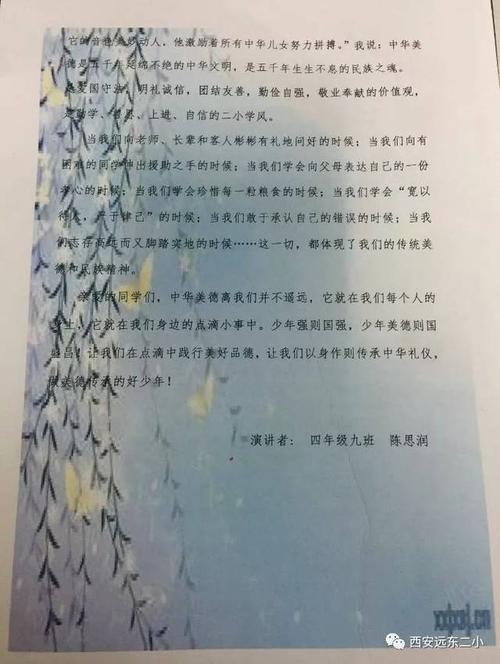 它的音色美妙动人，他激励着所有中华儿女努力拼搏。”我说：中华美
德是五千年延绵不绝的中华文明，是五千年生生不息的民族之魂。
是爱国守法，明礼诚信，团结友善，勤俭自强，敬业奉献的价值观，
是勤学、善思、上进、自信的二小学风。
当我们向老师、长辈和客人彬彬有礼地问好的时候；当我们向有
困难的同学伸出援助之手的时候；当我们学会向父母表达自己的一份
孝心的时候；当我们学会珍惜每一粒粮食的时候；当我们学会“宽以
待人，严于律己”的时候；当我们敢于承认自己的错误的时候；当我
们志存高远而又脚踏实地的时候……这一切，都体现了我们的传统美
德和民族精神。
亲爱的同学们，中华美德离我们并不遥远，它就在我们每个人的
身上，它就在我们身边的点滴小事中。少年强则国强，少年美德则国
盛昌！让我们在点滴中践行美好品德，让我们以身作则传承中华礼仪，
做美德传承的好少年！
演讲者： 四年级九班 陈思润
西安远东二小